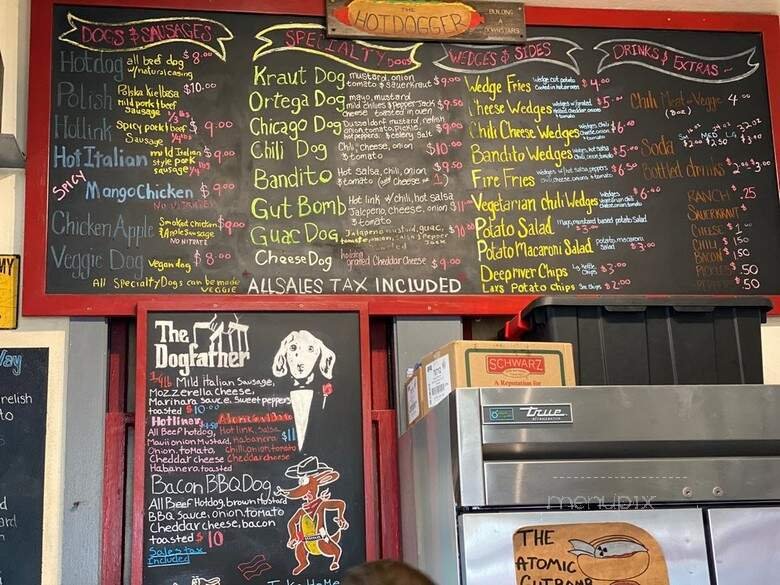 THE
HOTDOGGER
BUILDING
DOWNSTAIRS
DOGS & SAUSAGES
Hotdog all beef dog $8.00
w/natural casing
Polish Polska Kielbasa $10.00
mild pork & beef
Sausage 1/3#
Hotlink Spicy pork & beef $9.00
Sausage
Hot Italian mild Italian $9.00
style pork
sausage 1/4#
SPICY
Mango Chicken $9.00
NO NITRATES
Chicken Apple Smoked chicken $9.00
& Apple Sausage
NO NITRATE
Veggie Dog Vegan dog $8.00
All Specialty Dogs can be made
VEGGIE
SPECIALTY Dogs
Kraut Dog mustard, onion $9.00
tomato & sauerkraut
Ortega Dog mayo, mustard $9.50
mild chilies & Pepper Jack
cheese toasted in oven
Chicago Dog mustard, relish $9.00
onion, tomato, pickle,
peppers, & celery salt
Chili Dog Chili, cheese, onion $10.00
& tomato
Bandito Hot salsa, chili, onion $9.50
& tomato (add Cheese 1)
Gut Bomb Hot link w/ chili, hot salsa $11
Jalapeno, cheese, onion
& tomato
Guac Dog Jalapeno mustard, guac, $10
tomato, onion, salsa & Pepper
Jack
Cheese Dog hotdog
grated Cheddar Cheese $9.00
ALL SALES TAX INCLUDED
WEDGES & SIDES
Wedge Fries Wedge cut potato $4.00
Cheese Wedges $5.00
Chili Cheese Wedges $6.00
Bandito Wedges $5.00
Fire Fries $6.50
Vegetarian chili Wedges $6.00
Potato Salad mayo, mustard based potato Salad $3.00
Potato Macaroni Salad potato, macaroni
Salad $3.00
Deep river Chips Lg. Kettle
Chips $3.00
Lays Potato Chips $2.00
DRINKS & EXTRAS
Chili Meat-Veggie 4.00
Soda SM MED LG
Bottled drinks
RANCH $.25
SAUERKRAUT $
CHEESE $1
CHILI $1.50
BACON $1.50
PICKLES $.50
.50
The
Dogfather
1/4 lb Mild Italian Sausage,
Mozzerella Cheese,
Marinara sauce, Sweet peppers
toasted $10.00
Hotliner
All Beef hotdog,
Maui onion Mustard,
Onion, tomato,
Cheddar cheese
Habanero, toasted
Hot link, Salsa
Habanero
Chili, onion, tomato
Cheddar cheese
$11
Bacon BBQ Dog
All Beef Hotdog, brown Mustard
BBQ Sauce, onion, tomato
Cheddar cheese, bacon
toasted $10
Sales tax
Included
Take Home
SCHWARZ
A Reputation for
true
REFRIGERATION
menupix
THE
ATOMIC
GUTBOMB
MY
Way
relish
to
d
ard
n